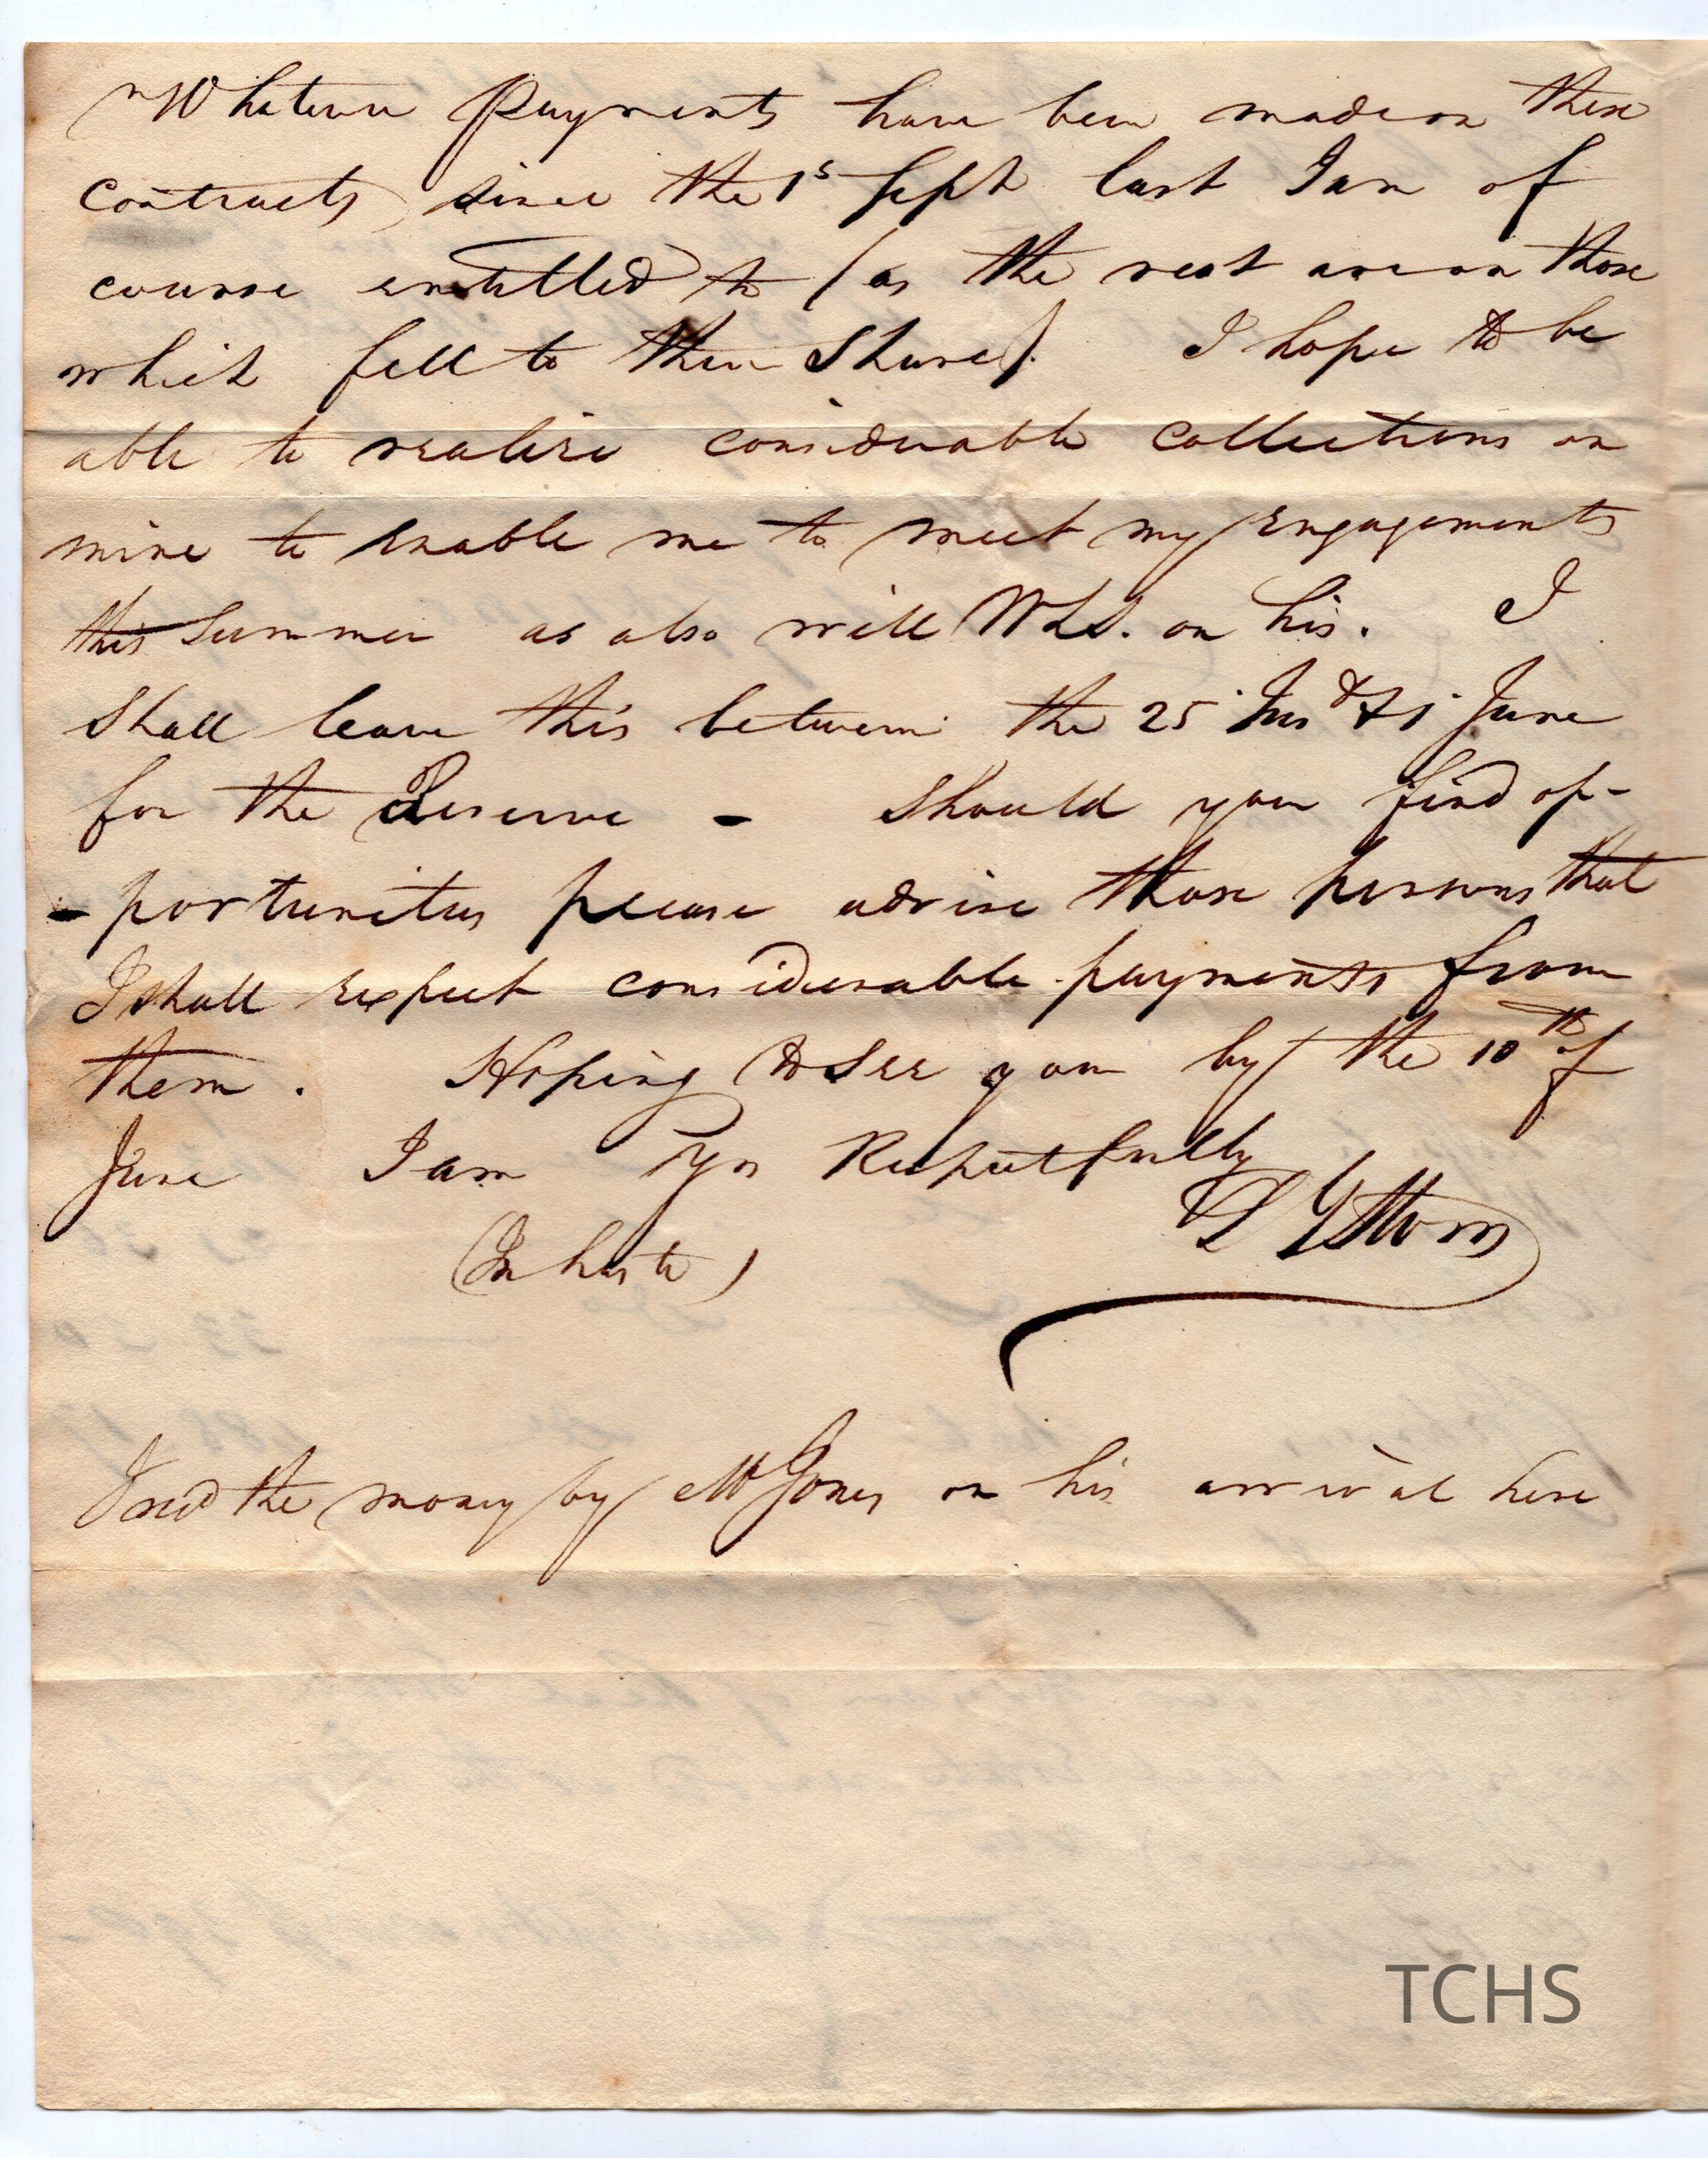 Whatever Payments have been made on these
contracts since the 1s Sept last I am of
course entitled to (as the rest are on those
which fell to their Share). I hope to be
able to realize considerable collections on
mine to enable me to meet my Engagements
this Summer as also will WLS. on his. I
Shall leave this between the 25 Inst & 1 June
for the Reserve - Should you find op-
-portunities please advise those persons that
I shall expect considerable payments from
them. Hoping to See you by the 10th of
June I am Yrs Respectfully
(In haste)
I recd the money by Mr Jones on his arrival here
TCHS